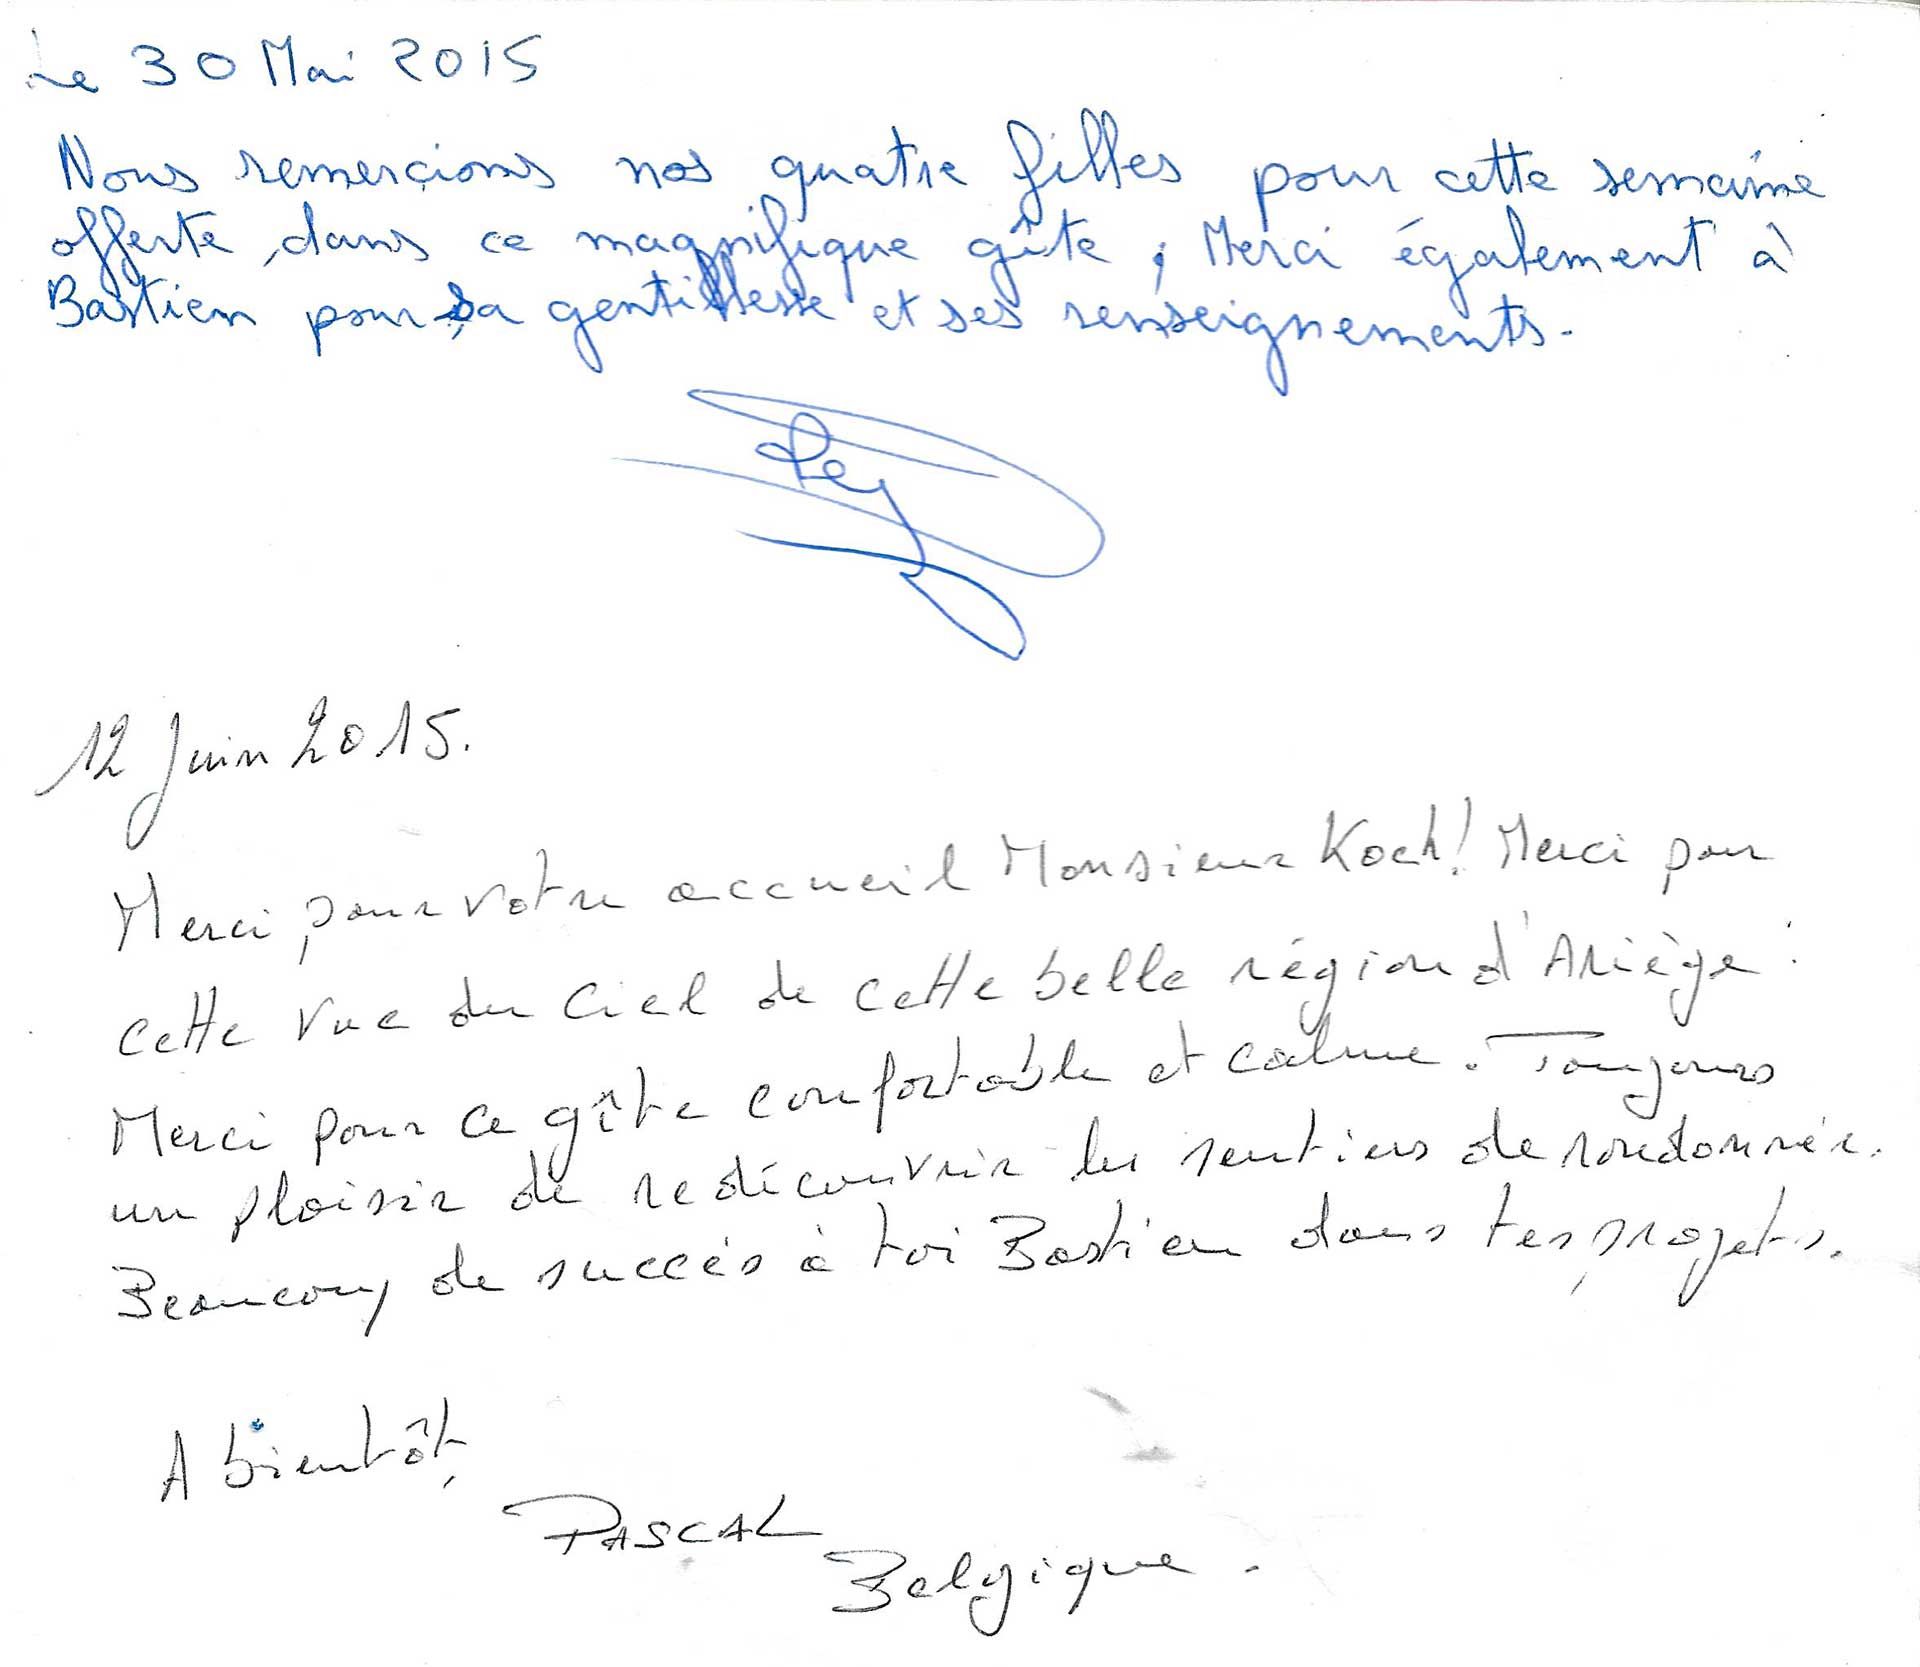 Le 30 Mai 2015
Nous remerçions nos quatre filles pour cette semaine
offerte, dans ce magnifique gîte ; Merci également à
Bastien pour sa gentillesse et ses renseignements.
12 Juin 2015.
Merci pour votre accueil Monsieur Koch! Merci pour
cette vue du Ciel de cette belle région d'Ariège.
Merci pour ce gîte confortable et calme. Toujours
un plaisir de redécouvrir les sentiers de randonnée.
Beaucoup de succès à toi Bastien dans tes projets.
A bientôt,
PASCAL
Belgique.